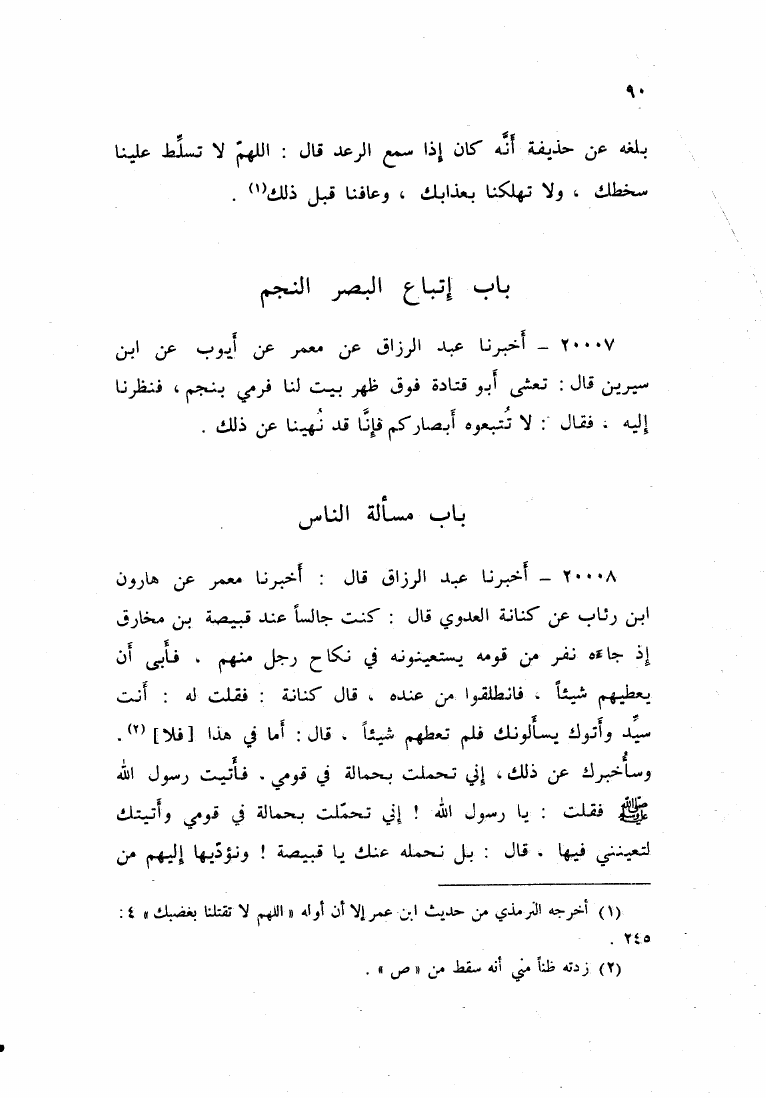 ٩٠
بلغه عن حذيفة أنَّه كان إذا سمع الرعد قال : اللهمّ لا تسلِّط علينا
سخطك ، ولا تهلكنا بعذابك ، وعافنا قبل ذلك(١) .
باب إتباع البصر النجم
٢٠٠٠٧ – أخبرنا عبد الرزاق عن معمر عن أيوب عن ابن
سيرين قال : تعشى أبو قتادة فوق ظهر بيت لنا فرمي بنجم ، فنظرنا
إليه ، فقال : لا تُتبعوه أبصاركم فإنَّا قد نُهينا عن ذلك .
باب مسألة الناس
٢٠٠٠٨ – أخبرنا عبد الرزاق قال : أخبرنا معمر عن هارون
ابن رئاب عن كنانة العدوي قال : كنت جالساً عند قبيصة بن مخارق
إذ جاءه نفر من قومه يستعينونه في نكاح رجل منهم . فأبى أن
يعطيهم شيئاً ، فانطلقوا من عنده ، قال كنانة : فقلت له : أنت
سيِّد وأتوك يسألونك فلم تعطهم شيئاً ، قال : أما في هذا [فلا](٢) .
وسأُخبرك عن ذلك، إني تحملت بحمالة في قومي. فأتيت رسول الله
ﷺ فقلت : يا رسول الله ! إني تحمّلت بحمالة في قومي وأتيتك
لتعينني فيها . قال : بل نحمله عنك يا قبيصة ! ونؤدّيها إليهم من
(١) أخرجه الترمذي من حديث ابن عمر إلا أن أوله « اللهم لا تقتلنا بغضبك » ٤ :
٢٤٥ .
(٢) زدته ظناً مني أنه سقط من « ص » .